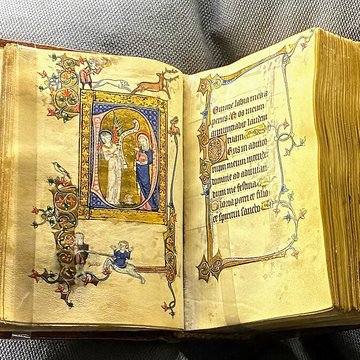 Domine labia mea a
peries Et os meum
annuntiabit laudem
tuam
Deus in adiuto
rium meum intende
domine ad adiuuan
dum me festina
Gloria patri et filio
et spiritui sancto